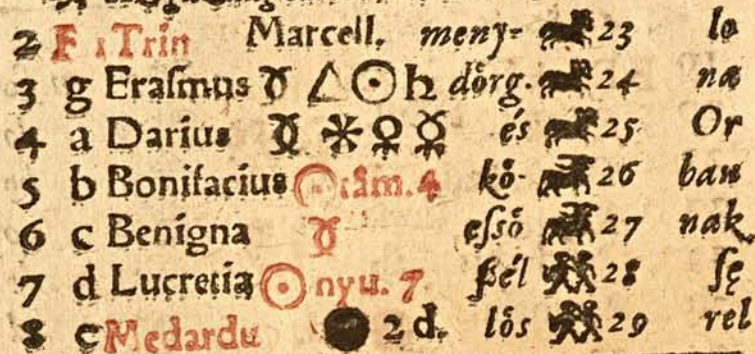 2 F 1 Trin Marcell. meny- 23 la
3 g Eraſmus ♉ △ ☉ ♄ dörg. 24 næ
4 a Darius ♉ ⚹ ♀ ☿ és 25 Or
5 b Bonifacius ☉ tám. 4 kö- 26 ban
6 c Benigna ♉ eſső 27 nak
7 d Lucretia ☉ nyu. 7 ſzél 28 ſę
8 e Medardu ● 2 d. lös 29 rel